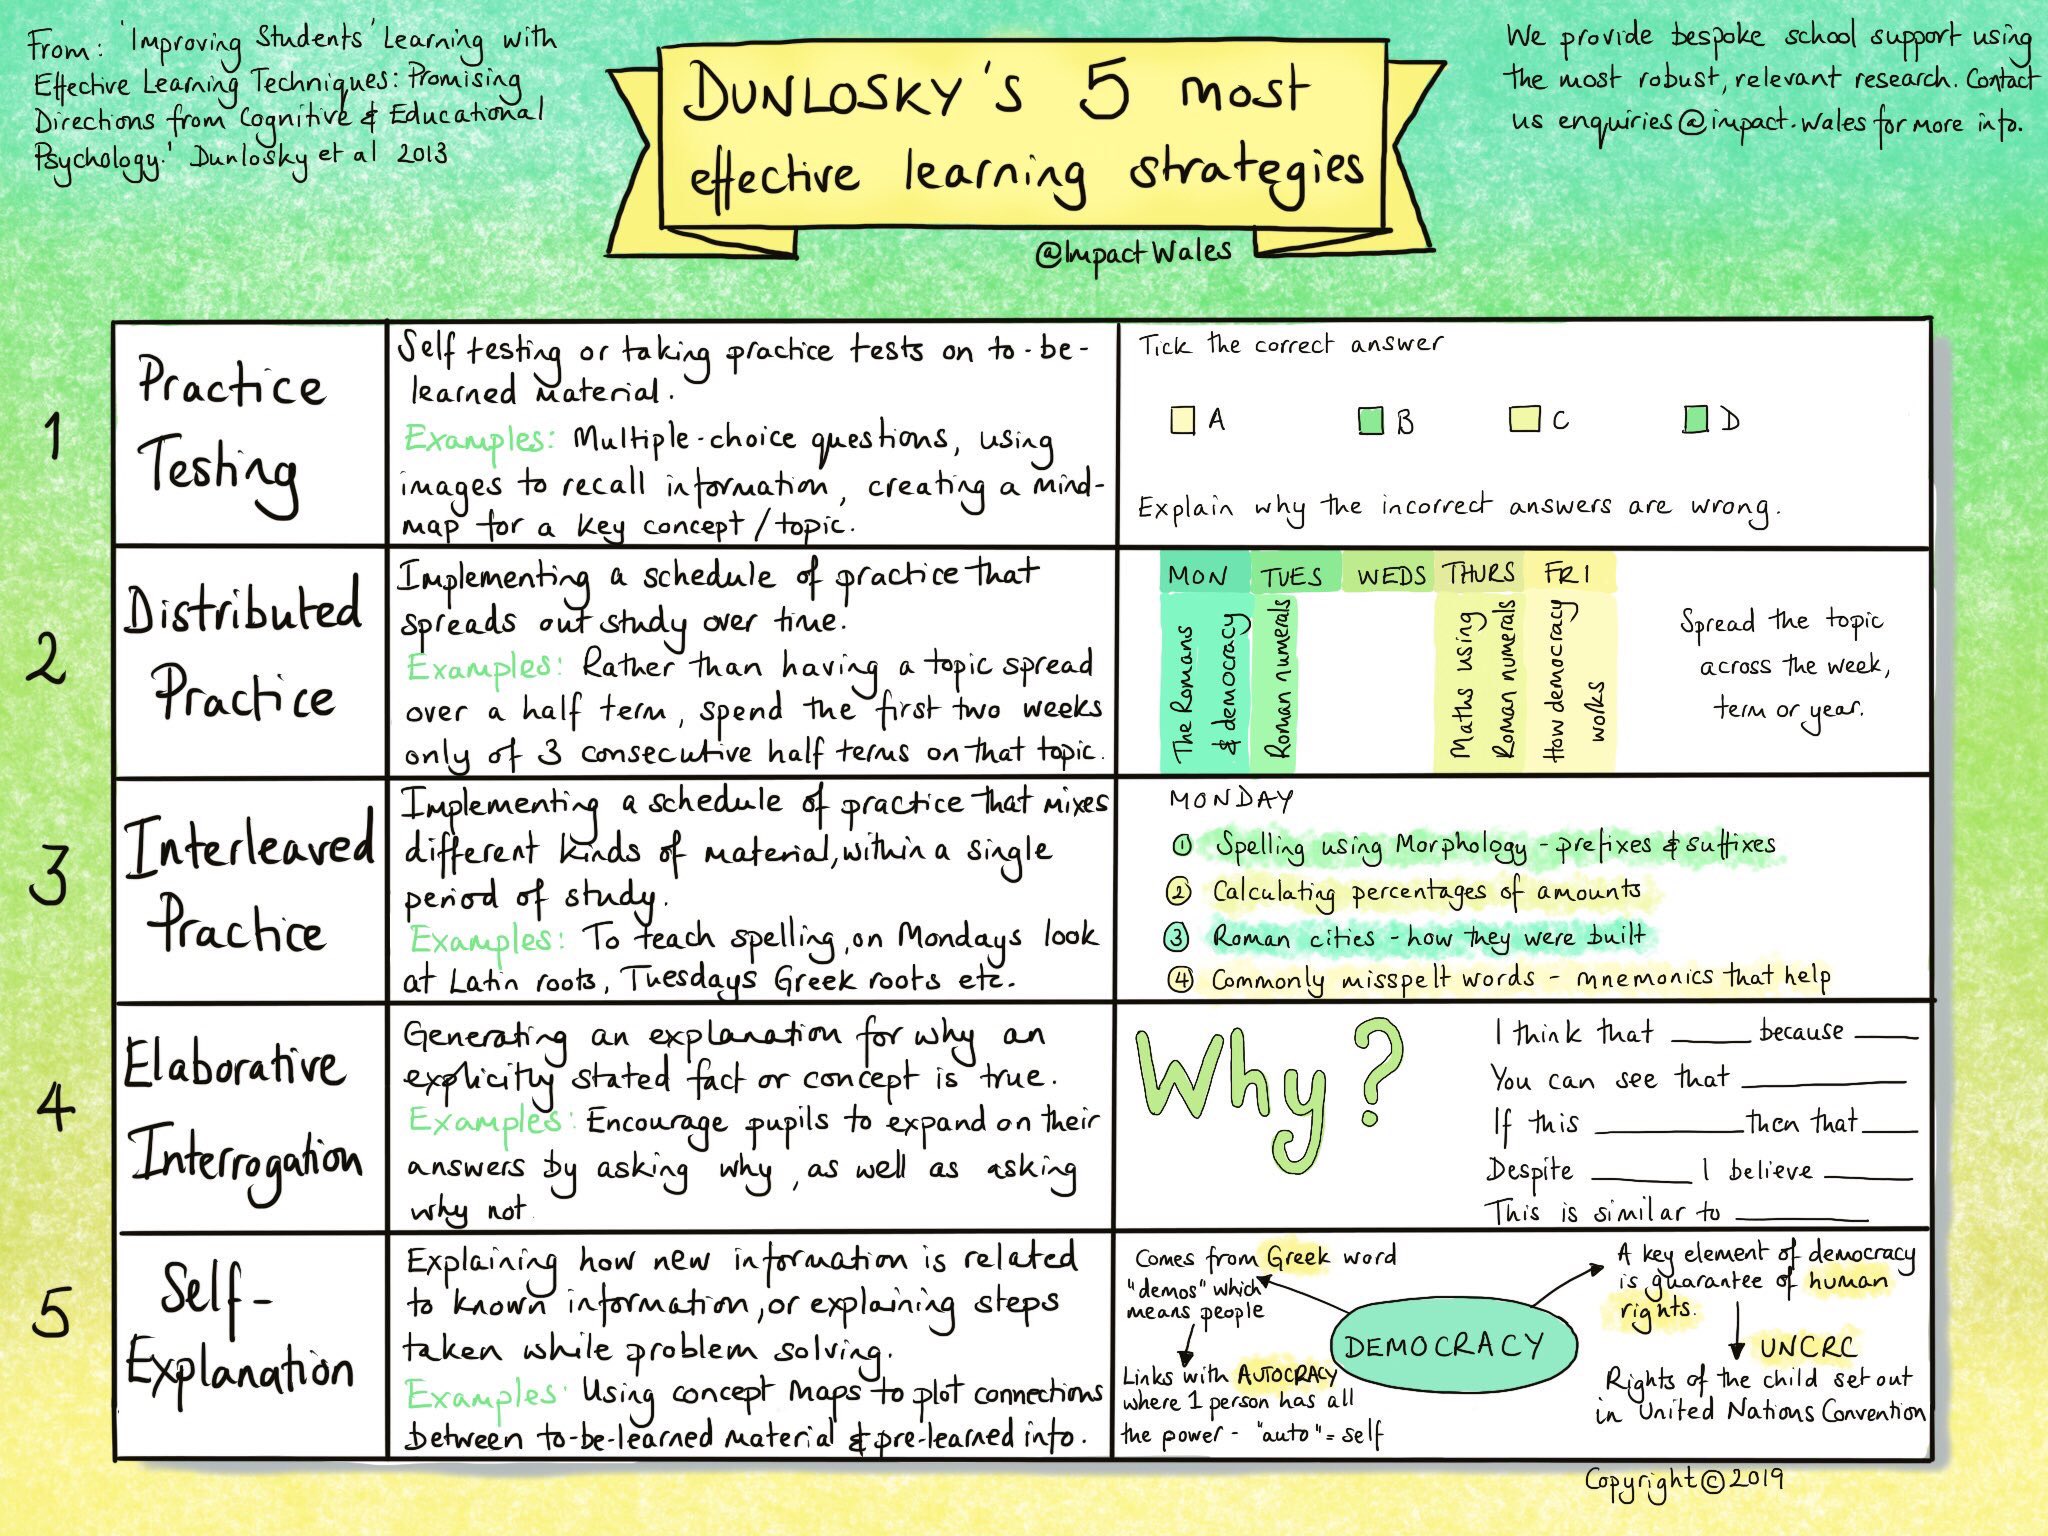 From: 'Improving Students' Learning with
Effective Learning Techniques: Promising
Directions from Cognitive & Educational
Psychology.' Dunlosky et al 2013
DUNLOSKY'S 5 most
effective learning strategies
@ImpactWales
We provide bespoke school support using
the most robust, relevant research. Contact
us enquiries@impact.wales for more info.
1
Practice
Testing
Self testing or taking practice tests on to-be-
learned material.
Examples: Multiple-choice questions, using
images to recall information, creating a mind-
map for a key concept/topic.
Tick the correct answer
A B C D
Explain why the incorrect answers are wrong.
2
Distributed
Practice
Implementing a schedule of practice that
spreads out study over time.
Examples: Rather than having a topic spread
over a half term, spend the first two weeks
only of 3 consecutive half terms on that topic.
MON TUES WEDS THURS FRI
The Romans
& democracy
Roman numerals
Maths using
Roman numerals
How democracy
works
Spread the topic
across the week,
term or year.
3
Interleaved
Practice
Implementing a schedule of practice that mixes
different kinds of material, within a single
period of study.
Examples: To teach spelling, on Mondays look
at Latin roots, Tuesdays Greek roots etc.
MONDAY
1 Spelling using Morphology - prefixes & suffixes
2 Calculating percentages of amounts
3 Roman cities - how they were built
4 Commonly misspelt words - mnemonics that help
4
Elaborative
Interrogation
Generating an explanation for why an
explicitly stated fact or concept is true.
Examples: Encourage pupils to expand on their
answers by asking why, as well as asking
why not
Why?
I think that ______ because _____
You can see that ____________
If this ___________ then that ____
Despite _______ I believe ______
This is similar to _________
5
Self-
Explanation
Explaining how new information is related
to known information, or explaining steps
taken while problem solving.
Examples: Using concept maps to plot connections
between to-be-learned material & pre-learned info.
Comes from Greek word
"demos" which
means people
Links with AUTOCRACY
where 1 person has all
the power - "auto" = self
DEMOCRACY
A key element of democracy
is guarantee of human
rights.
UNCRC
Rights of the child set out
in United Nations Convention
Copyright © 2019